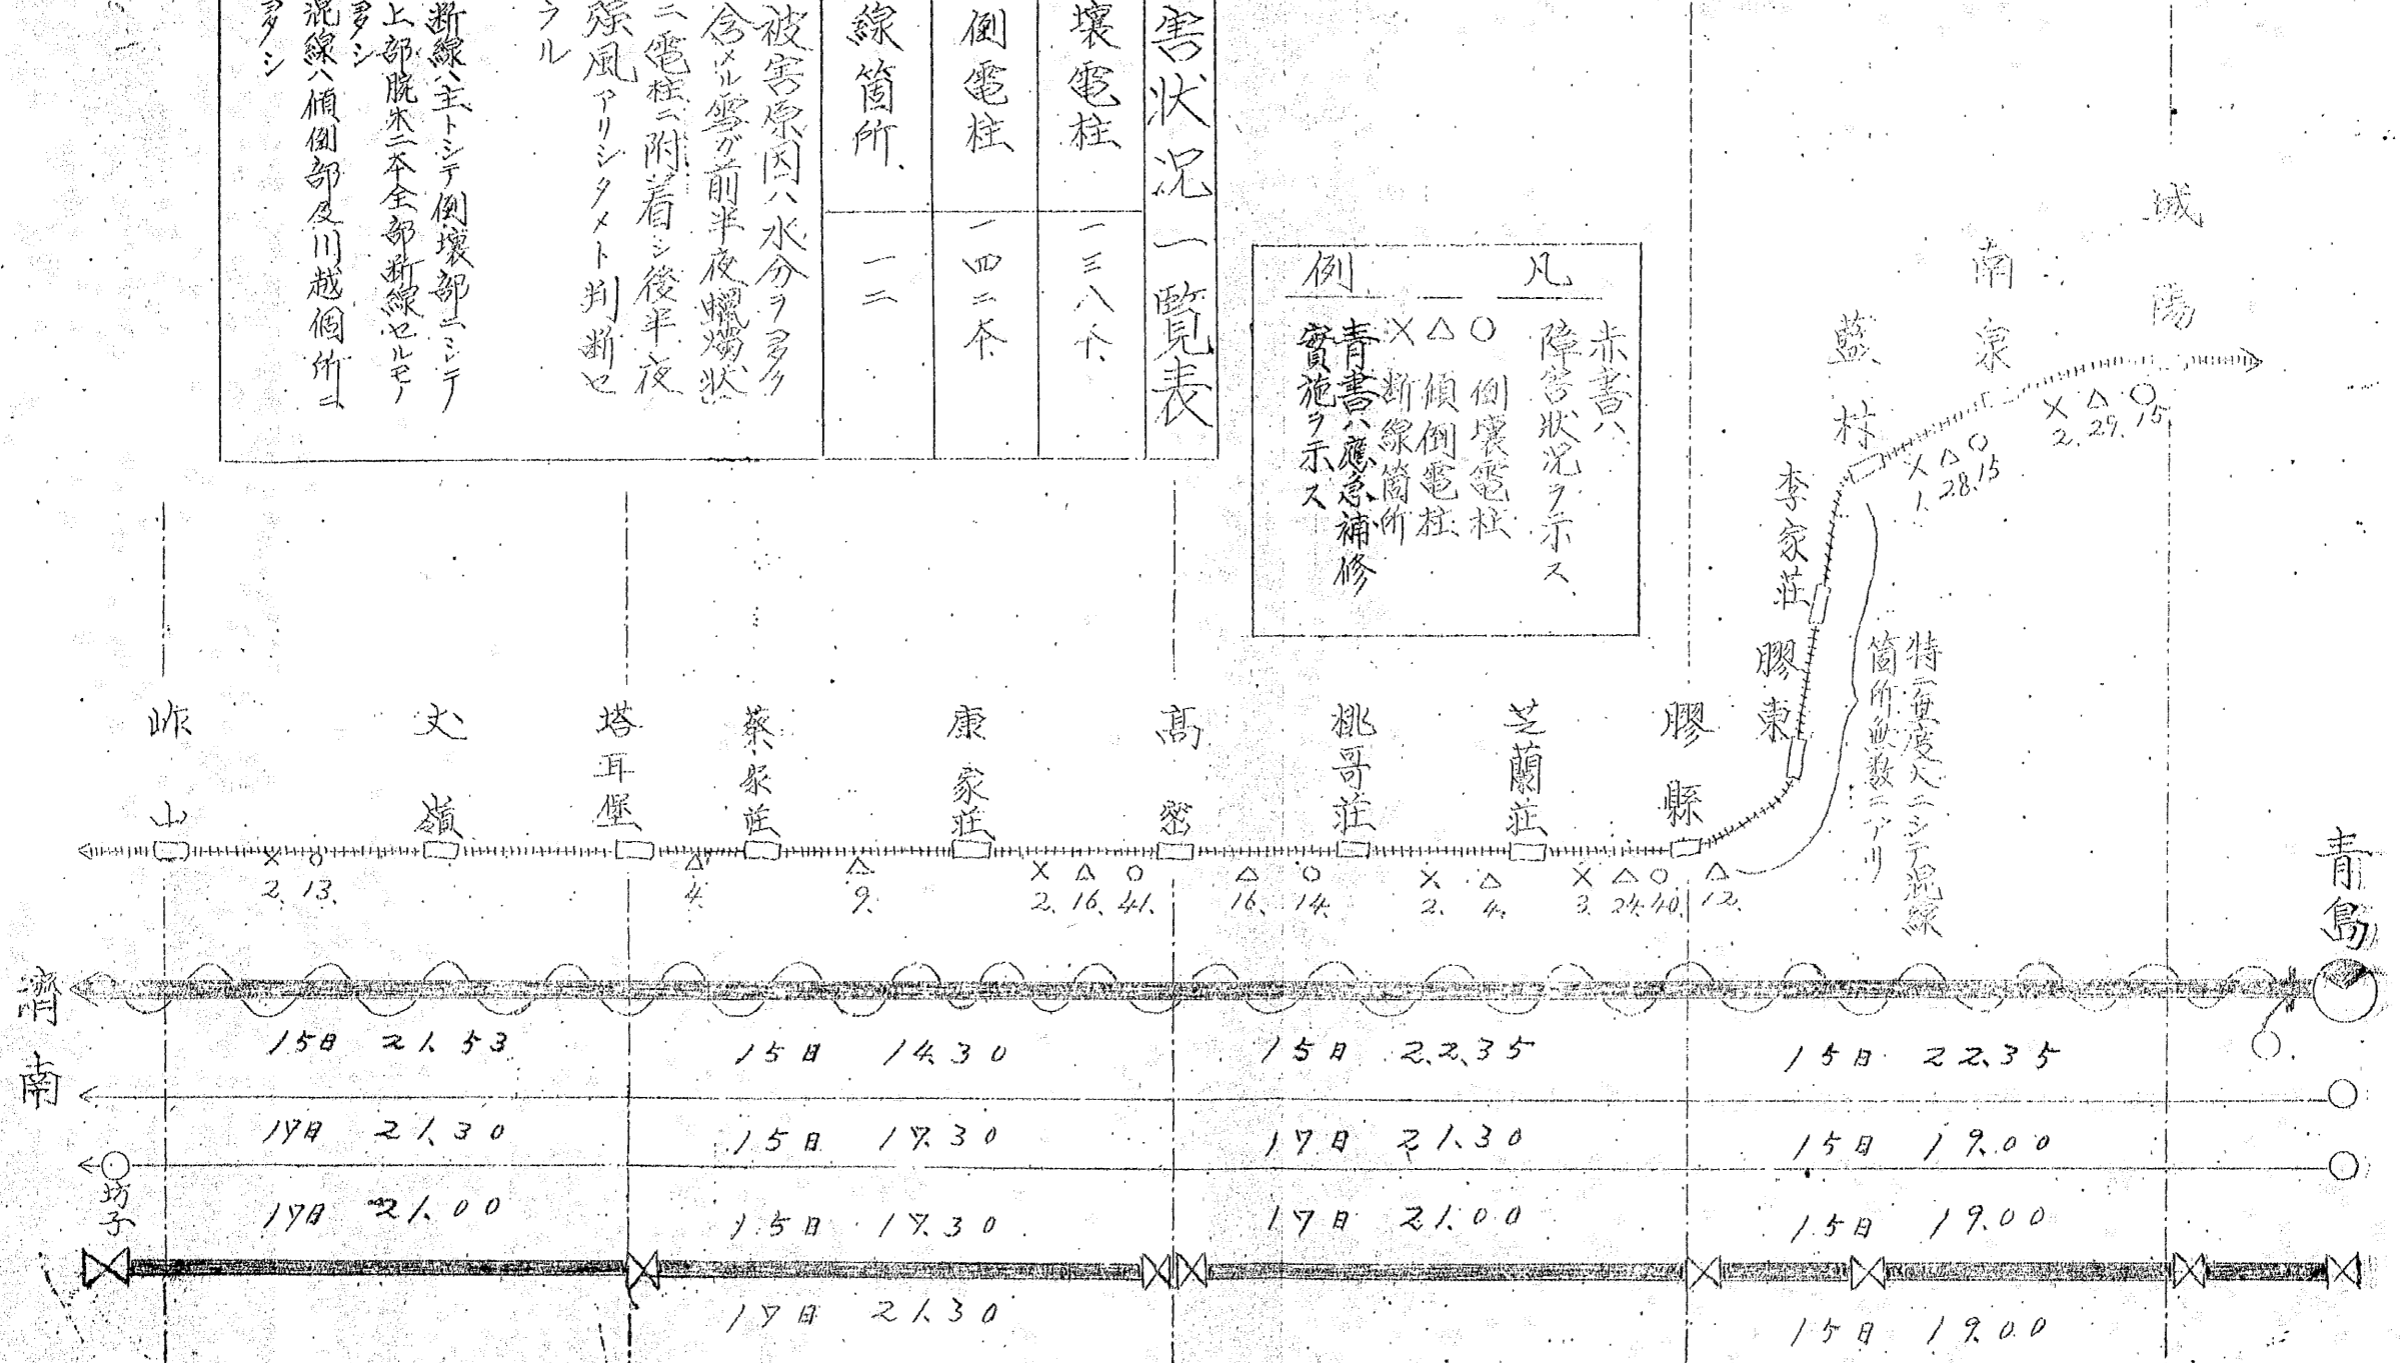 害状況一覧表
壞電柱 一三八本
倒電柱 一四二本
線箇所 一二
被害原因ハ水分ヲ多ク
含メル雪ガ前半夜蠟燭状
ニ電柱ニ附着シ後半夜
强風アリシタメト判断セ
ラル
断線ハ主トシテ倒壞部ニシテ
上部腕木二本全部断線セルモノ
多シ
混線ハ傾倒部及川越個所ニ
多シ
凡例
赤書ハ
障害状況ヲ示ス
○ 倒壞電柱
△ 傾倒電柱
× 断線箇所
青書ハ應急補修
實施ヲ示ス
城陽
南泉
藍村
李家莊
膠東
膠縣
芝蘭莊
姚哥莊
高密
康家莊
蔡家莊
塔耳堡
丈嶺
岞山
× △ ○
2. 29. 15.
× △ ○
1. 28. 15
特ニ垂度大ニシテ混線
箇所無数ニアリ
△
12.
× △ ○
3. 24. 40.
× △
2. 4.
△ ○
16. 14.
× △ ○
2. 16. 41.
△
9.
△
4.
× ○
2. 13.
青島
濟南
坊子
15日 21.53
15日 14.30
15日 22.35
15日 22.35
17日 21.30
15日 17.30
17日 21.30
15日 19.00
17日 21.00
15日 17.30
17日 21.00
15日 19.00
17日 21.30
15日 19.00